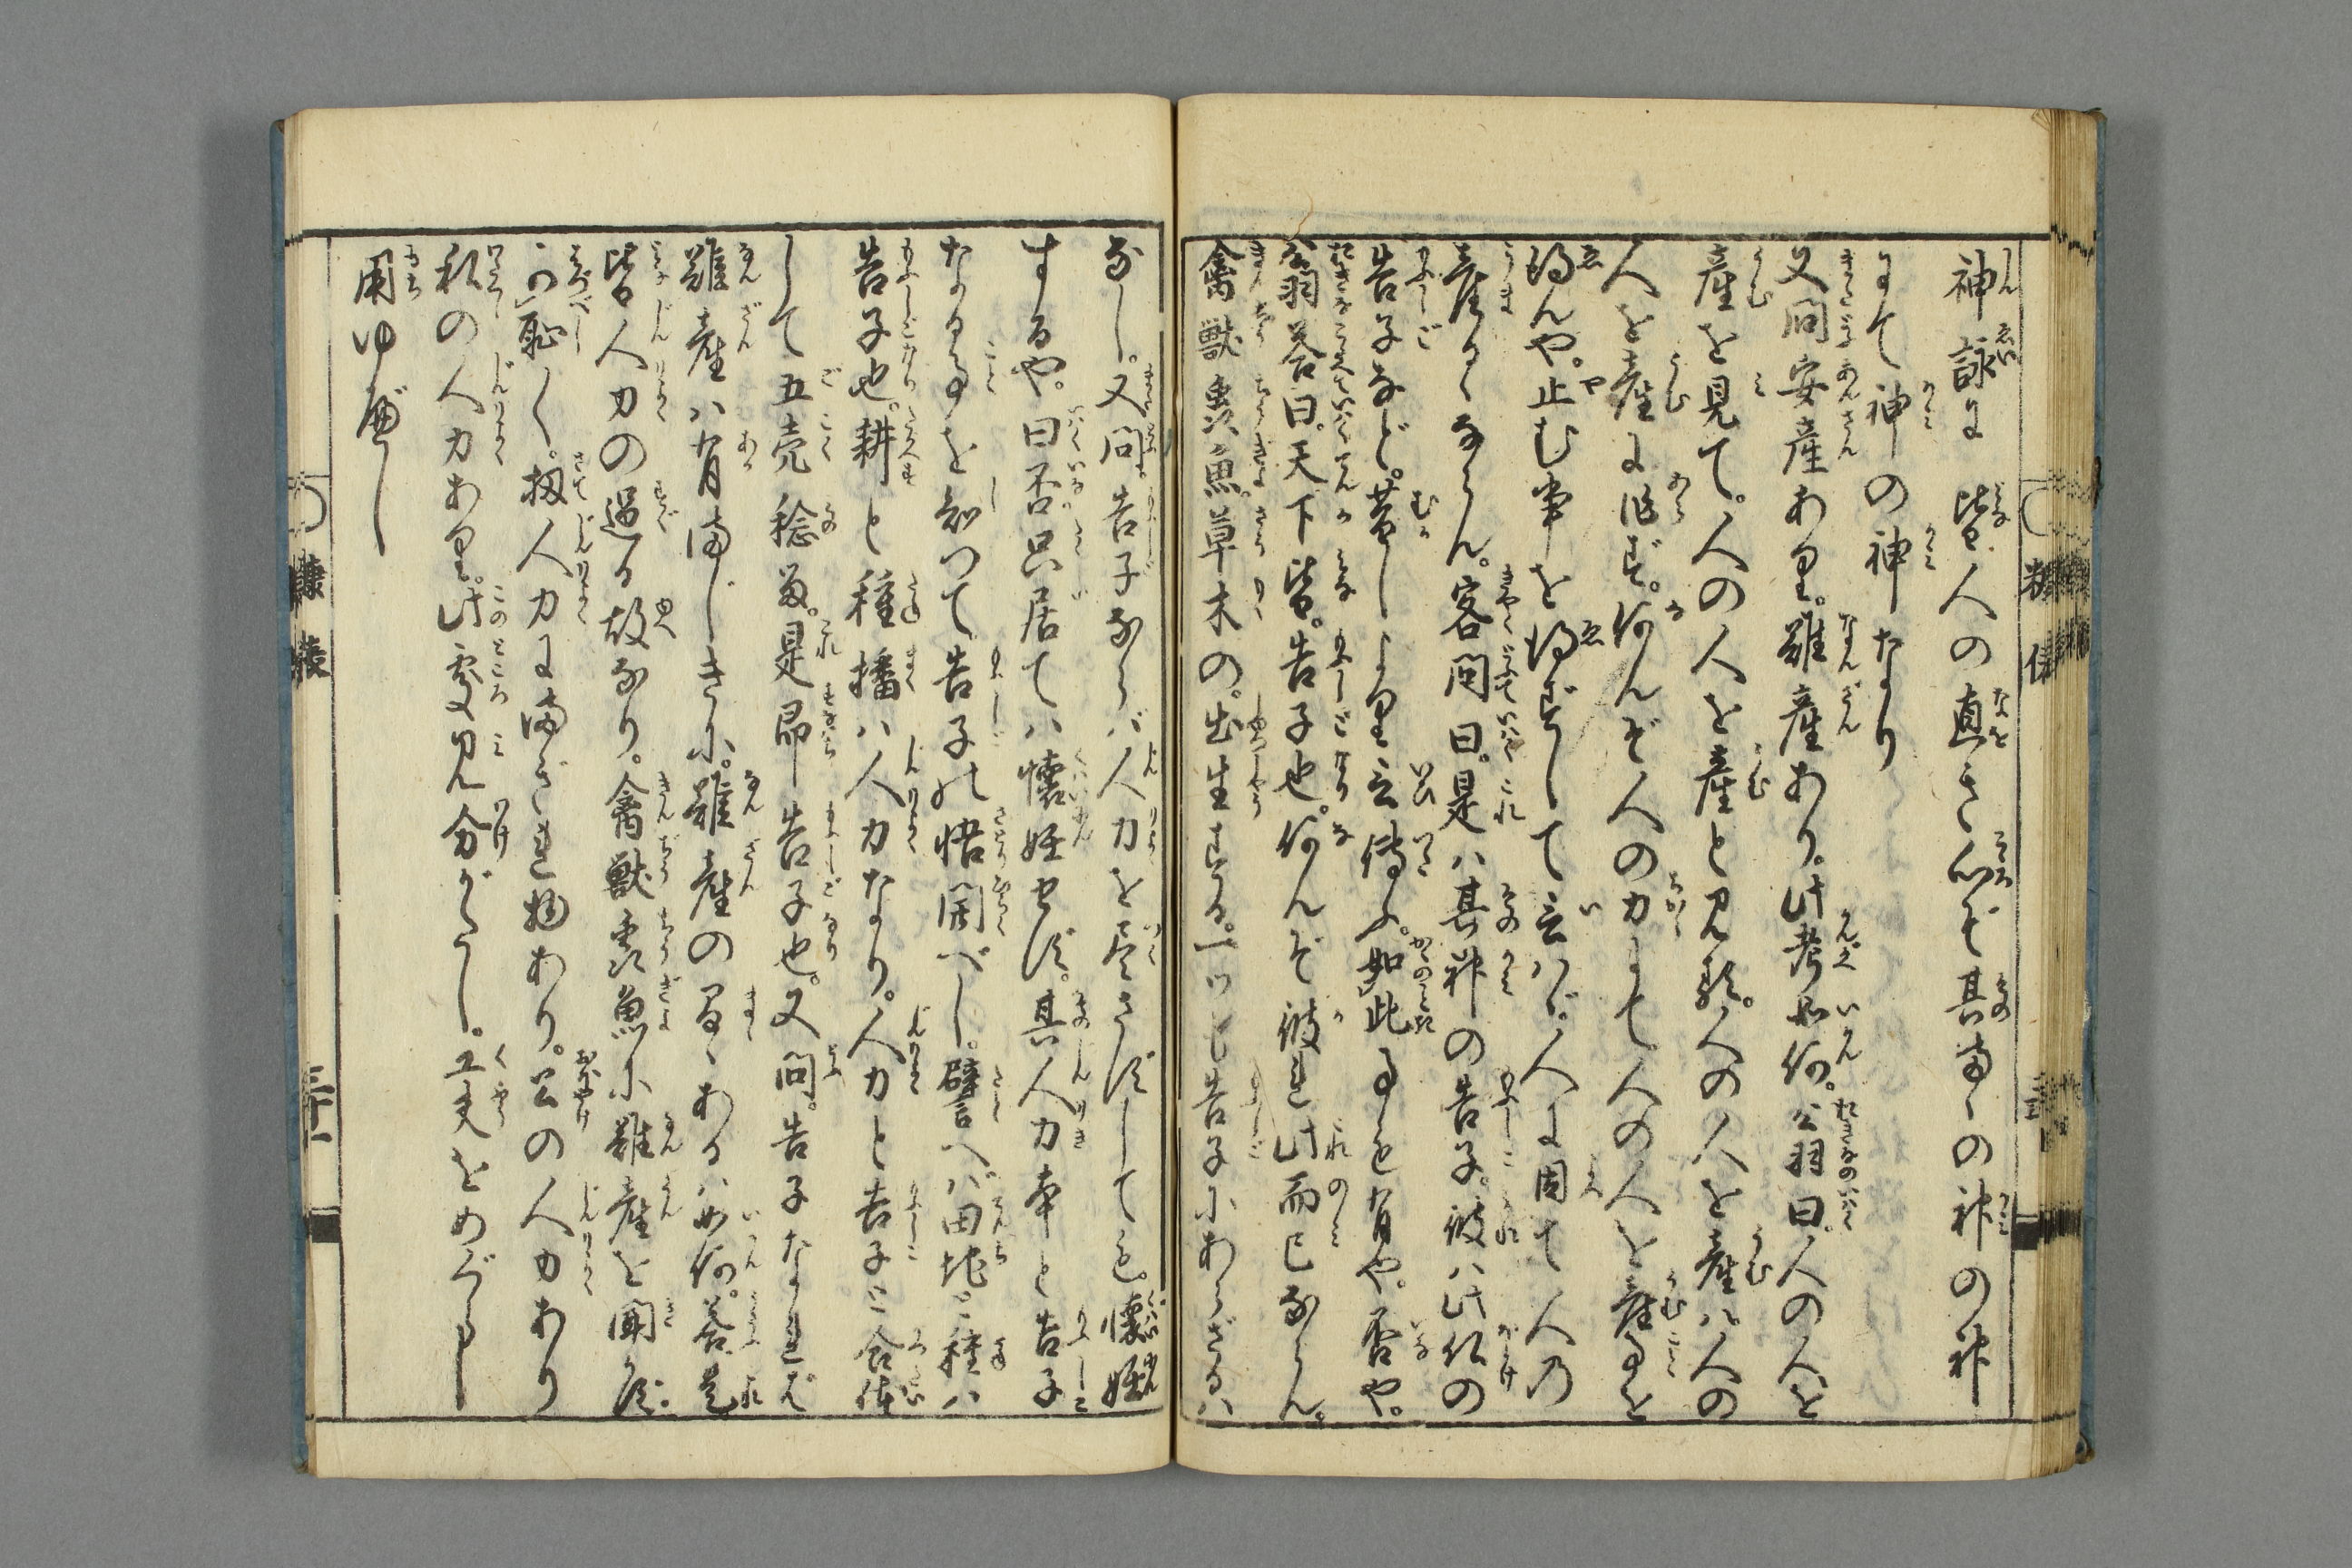 神詠に 皆人の直き心ぞ其まゝの神の神
にて神の神なり
又問安産あり。難産あり。此考如何。公羽曰。人の人を
産を見て。人の人を産と見歟。人の人を産ハ。人の
人を産に非ず。何んぞ人の力にて人の人を産事を
得んや。止む事を得ずして言ハゞ。人に因て人の
産るゝならん。客問曰。是ハ其神の告子。彼ハ此仏の
告子など。昔しより言傳ふ。如此事も有や。否や。
公羽答曰。天下皆。告子也。何んぞ彼れ此而已ならん。
禽獣虫魚。草木の。出生する。一ツも告子にあらざるハ
なし。又問。告子ならバ人力を尽さずしても。懐妊
するや。曰否只居てハ懐妊せず。其人力本と告子
なる事を知つて告子の悟開べし。譬へバ田地に種ハ
告子也。耕と種播ハ人力なり。人力と告子と合体
して五穀稔る。是即告子也。又問。告子なれば
難産ハ有まじきに。難産のまゝあるハ如何。答是
皆人力の過る故なり。禽獣虫魚に難産を聞かず。
可恥々。扨人力に満ざれ物あり。公の人力あり
私の人力あり。此処見分がたし。工夫をめぐらし
用ゆべし
三十一